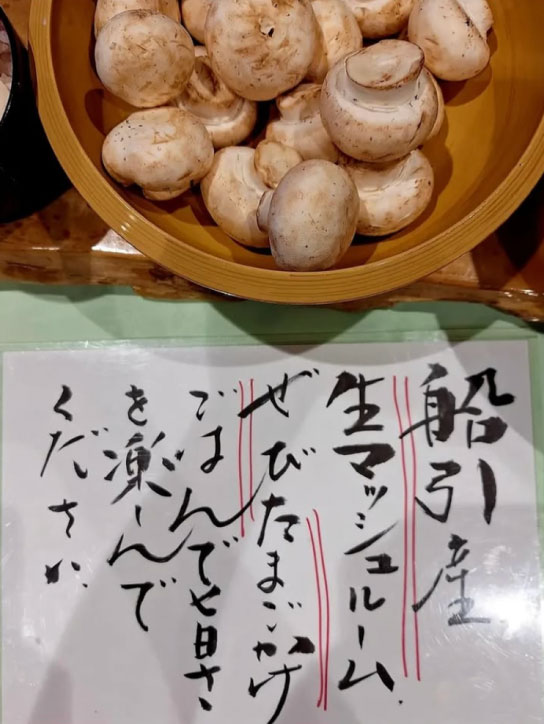 船引産
生マッシュルーム
ぜひたまごかけ
ごはんで旨さ
を楽しんで
ください。